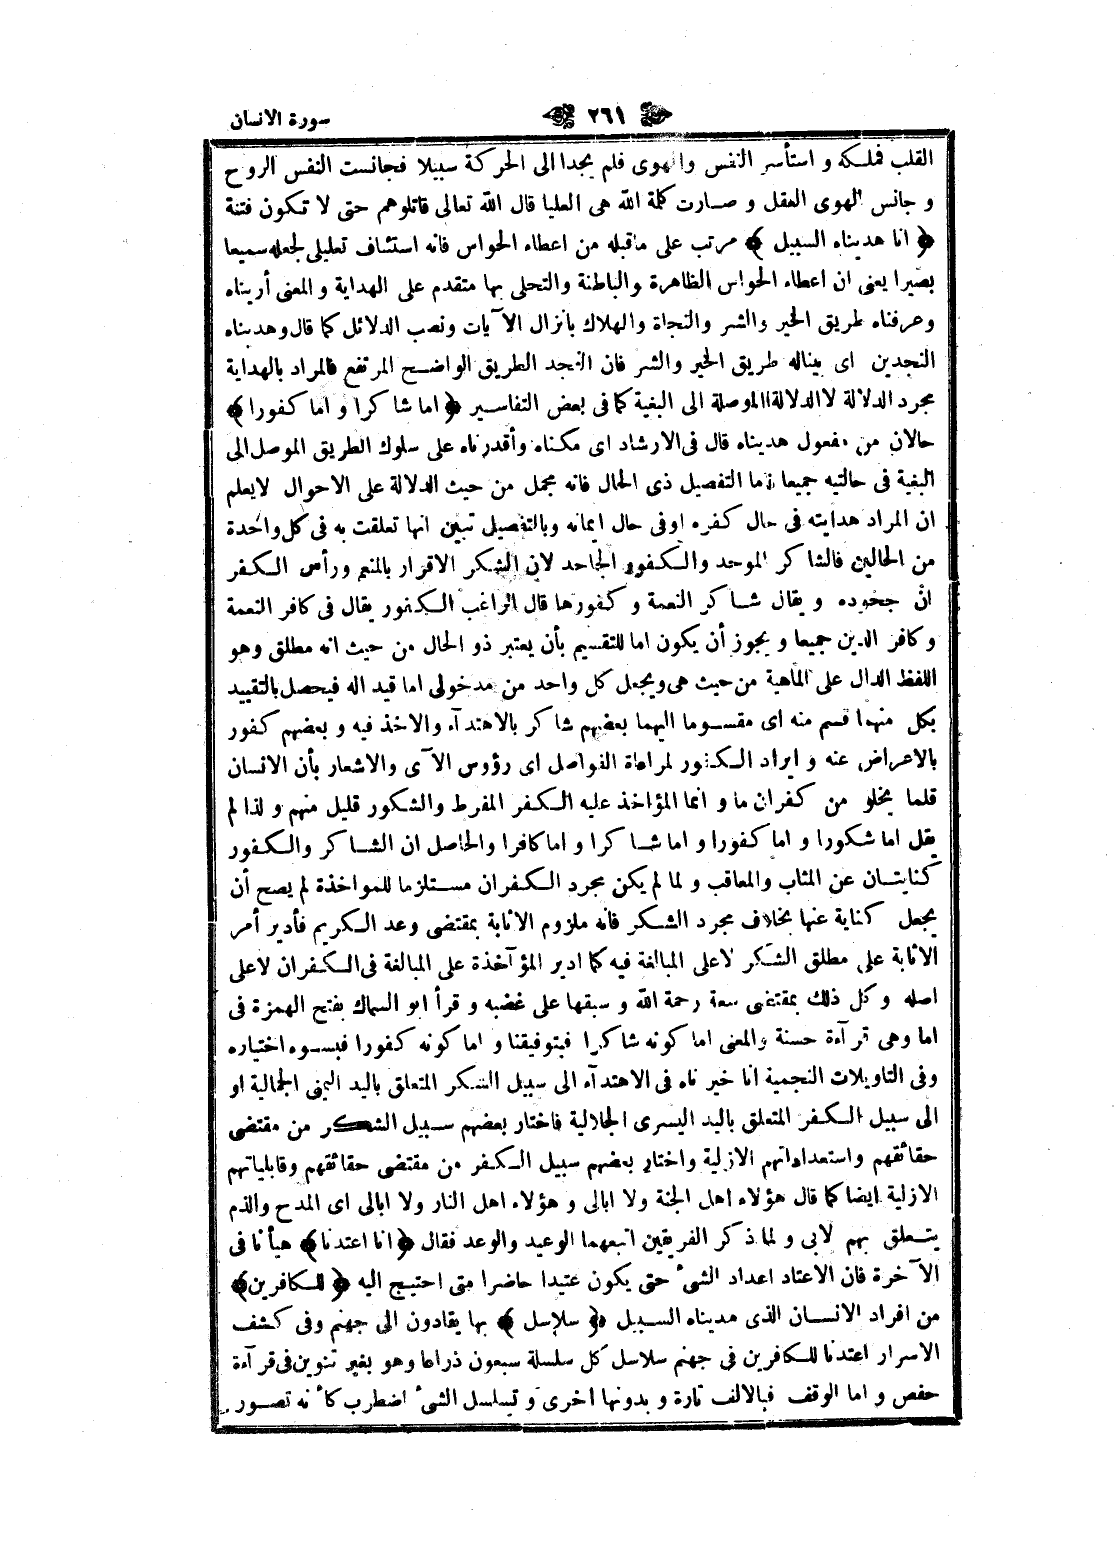 سورة الانسان
٢٦١
القلب فملكه و استأسر النفس والهوى فلم يجدا الى الحركة سبيلا فجانست النفس الروح
و جانس الهوى العقل و صارت كلمة الله هى العليا قال الله تعالى قاتلوهم حتى لا تكون فتنة
﴿ انا هديناه السبيل ﴾ مرتب على ماقبله من اعطاء الحواس فانه استئناف تعليلى لجعله سميعا
بصيرا يعنى ان اعطاء الحواس الظاهرة والباطنة والتحلى بها متقدم على الهداية و المعنى أريناه
وعرفناه طريق الخير والشر والنجاة والهلاك بانزال الآيات ونصب الدلائل كما قال وهديناه
النجدين اى بيناله طريق الخير والشر فان النجد الطريق الواضح المرتفع فالمراد بالهداية
مجرد الدلالة لاالدلالةالموصلة الى البغية كما فى بعض التفاسير ﴿ اما شاكرا و اما كفورا ﴾
حالان من مفعول هديناه قال فى الارشاد اى مكناه وأقدرناه على سلوك الطريق الموصل الى
البغية فى حالتيه جميعا فاما التفصيل ذى الحال فانه مجمل من حيث الدلالة على الاحوال لايعلم
ان المراد هدايته فى حال كفره اوفى حال ايمانه وبالتفصيل تبين انها تعلقت به فى كل واحدة
من الحالين فالشاكر الموحد والكفور الجاحد لان الشكر الاقرار بالمنعم ورأس الكفر
ان جحوده و يقال شاكر النعمة و كفورها قال الراغب الكفور يقال فى كافر النعمة
وكافر الدين جميعا و يجوز أن يكون اما للتقسيم بأن يعتبر ذو الحال من حيث انه مطلق وهو
اللفظ الدال على الماهية من حيث هى ويجعل كل واحد من مدخولى اما قيد اله فيحصل بالتقييد
بكل منهما قسم منه اى مقسوما اليهما بعضهم شاكر بالاهتدآء والاخذ فيه و بعضهم كفور
بالاعراض عنه و ايراد الكفور لمراعاة الفواصل اى رؤوس الآى والاشعار بأن الانسان
قلما يخلو من كفران ما و انما المؤاخذ عليه الكفر المفرط والشكور قليل منهم و لذا لم
يقل اما شكورا و اما كفورا و اما شاكرا و اما كافرا والحاصل ان الشاكر والكفور
كنايتان عن المثاب والمعاقب و لما لم يكن مجرد الكفران مستلزما للمواخذة لم يصح أن
يجعل كناية عنها بخلاف مجرد الشكر فانه ملزوم الاثابة بمقتضى وعد الكريم فأدير أمر
الاثابة على مطلق الشكر لاعلى المبالغة فيه كما ادير المؤآخذة على المبالغة فى الكفران لاعلى
اصله و كل ذلك بمقتضى سعة رحمة الله و سبقها على غضبه و قرأ ابو السماك بفتح الهمزة فى
اما وهى قرآءة حسنة والمعنى اما كونه شاكرا فبتوفيقنا و اما كونه كفورا فبسوء اختياره
وفى التاويلات النجمية انا خيرناه فى الاهتدآء الى سبيل الشكر المتعلق باليد اليمنى الجمالية او
الى سبيل الكفر المتعلق باليد اليسرى الجلالية فاختار بعضهم سبيل الشكر من مقتضى
حقائقهم واستعداداتهم الازلية واختار بعضهم سبيل الكفر من مقتضى حقائقهم وقابلياتهم
الازلية ايضا كما قال هؤلاء اهل الجنة ولا ابالى و هؤلاء اهل النار ولا ابالى اى المدح والذم
يتعلق بهم لابى و لما ذكر الفريقين اتبعهما الوعيد والوعد فقال ﴿ انا اعتدنا ﴾ هيأنا فى
الآخرة فان الاعتاد اعداد الشىء حتى يكون عتيدا حاضرا متى احتيج اليه ﴿ للكافرين ﴾
من افراد الانسان الذى هديناه السبيل ﴿ سلاسل ﴾ بها يقادون الى جهنم وفى كشف
الاسرار اعتدنا للكافرين فى جهنم سلاسل كل سلسلة سبعون ذراعا وهو بغير تنوين فى قرآءة
حفص و اما الوقف فبالالف تارة و بدونها اخرى و تسلسل الشىء اضطرب كأنه تصور